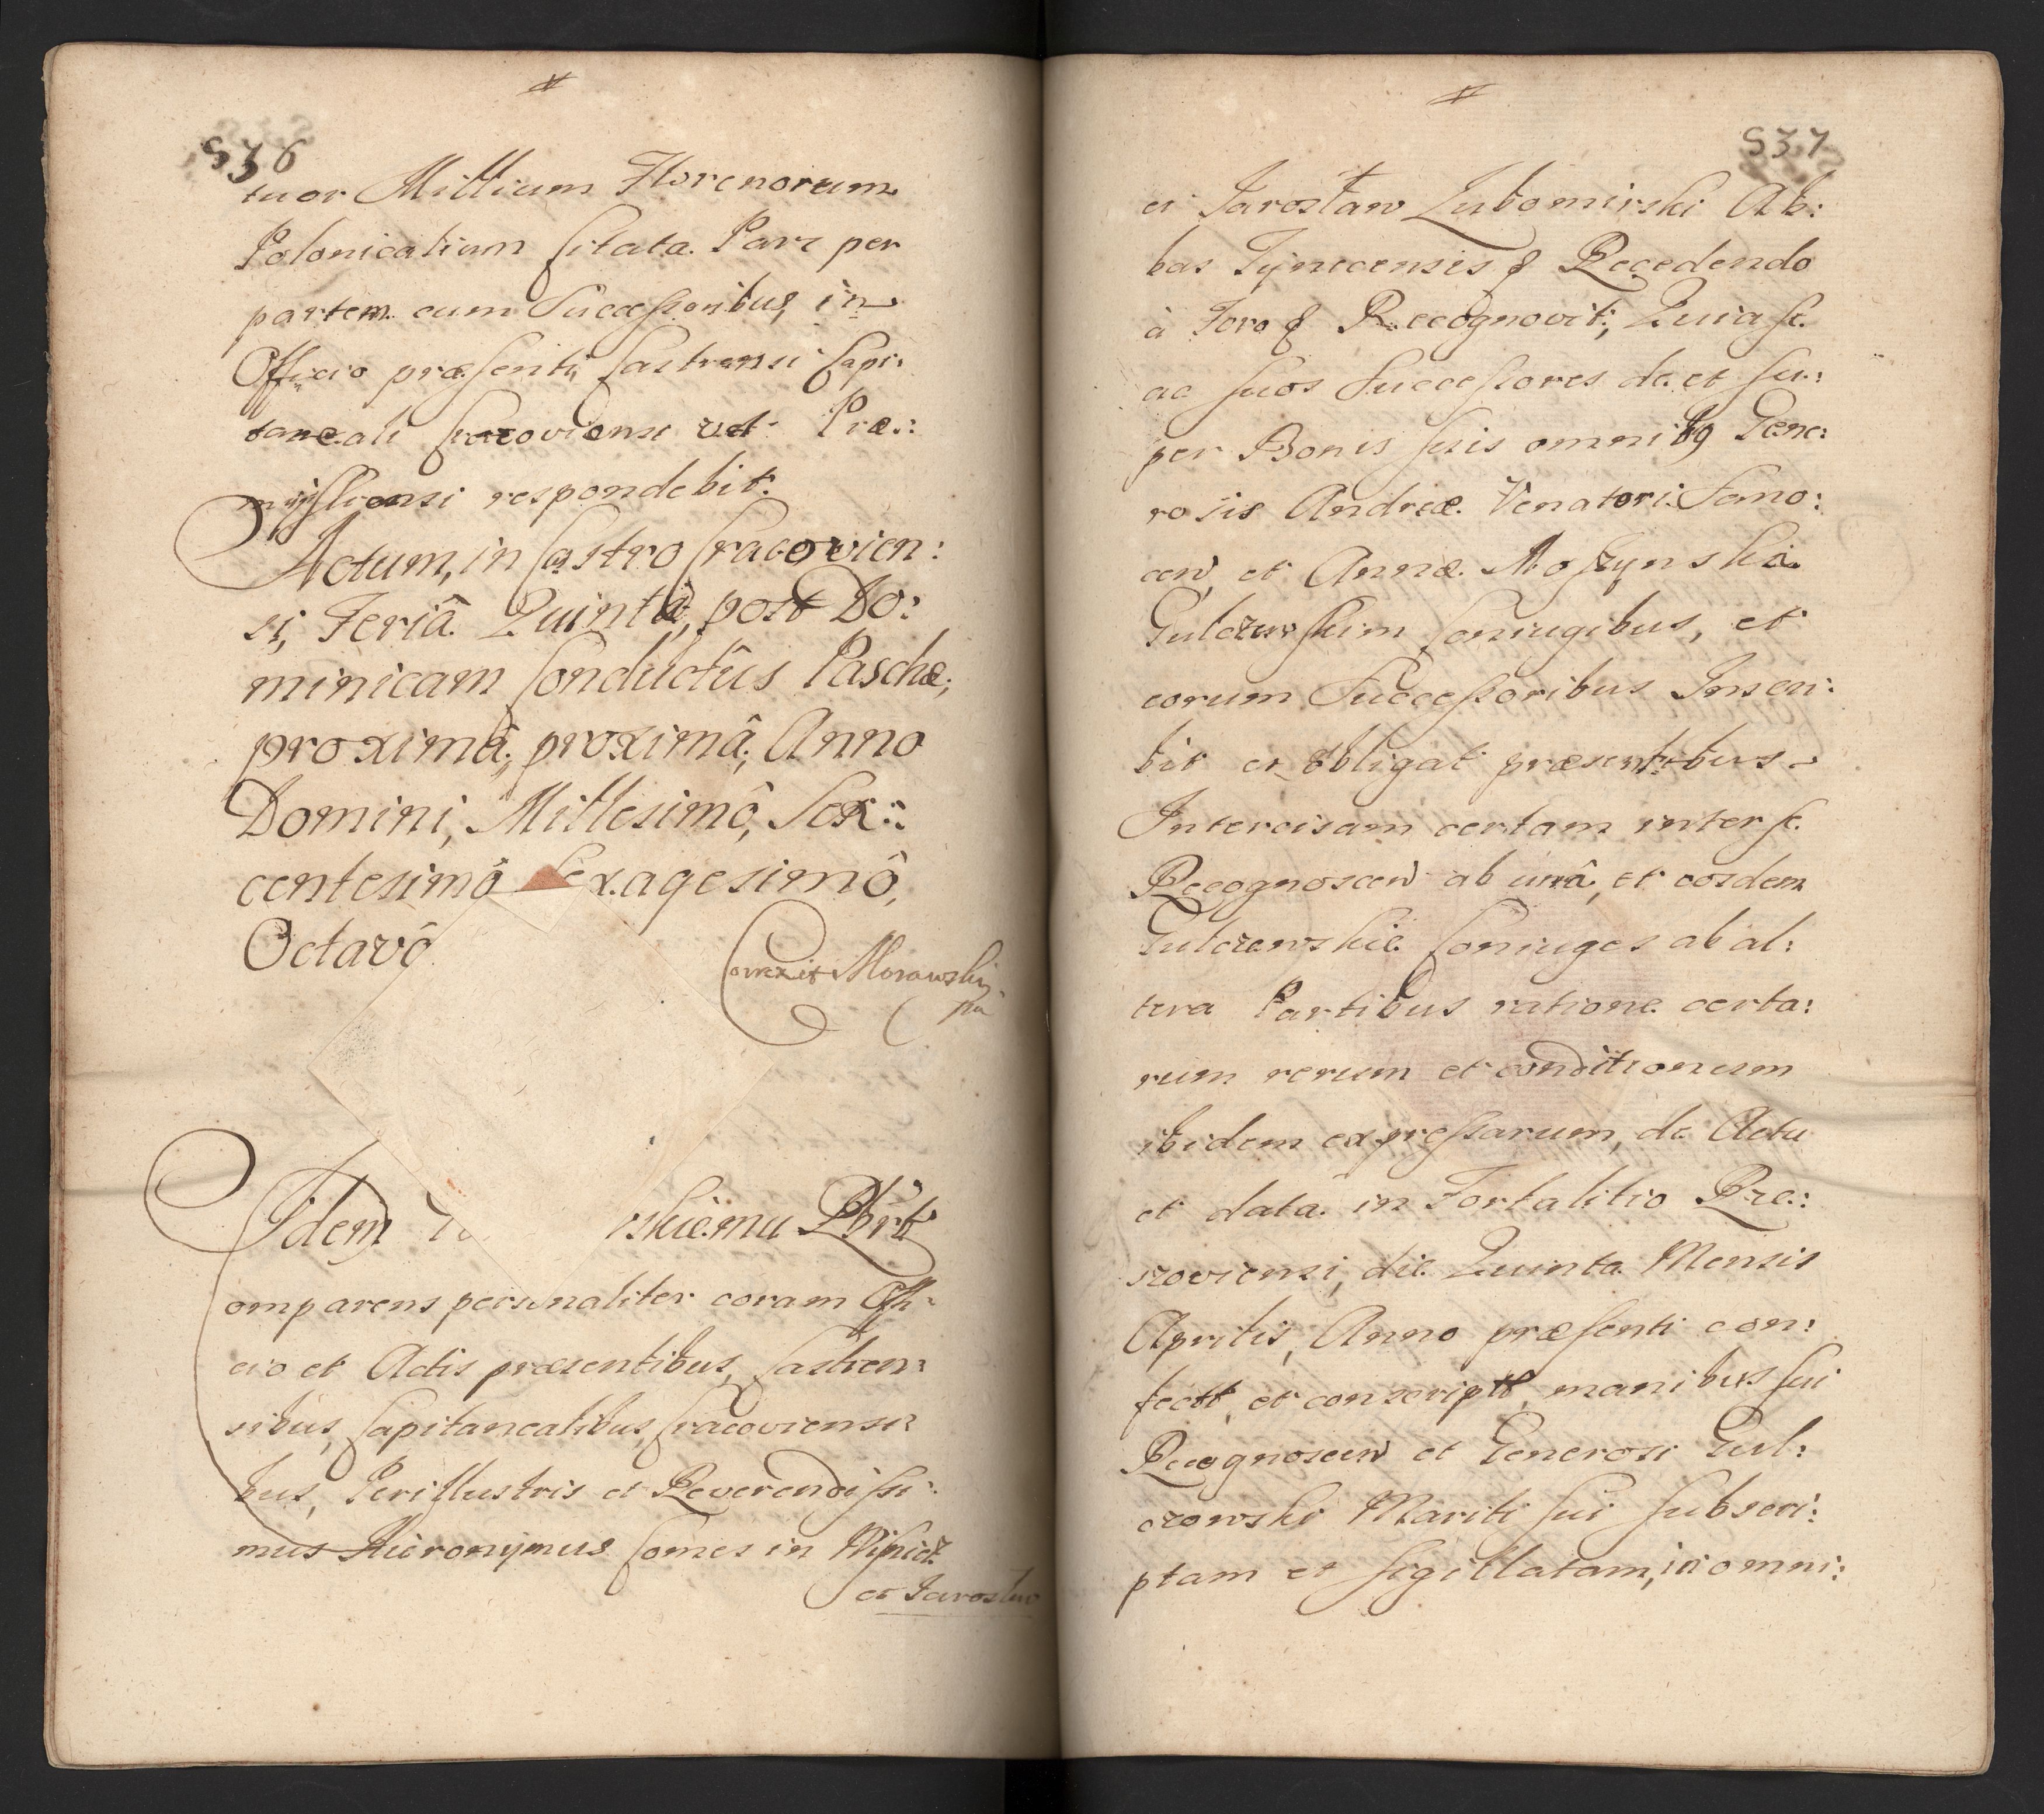 536
tuor Millium Florenorum
Polonicalium citata Pars per
partem cum Successoribus, in
Officio præsenti, Castrensi Capi:
taneali Cracoviensi vel Præ:
mÿsliensi respondebit.
Actum, in Castro Cracovien:
si, Feriâ Quintâ, post Do:
minicam Conductûs Paschæ,
proximâ, proximâ, Anno
Domini, Millesimô, Sex:
centesimô Sexagesimô,
Octavô
Correxit Morawski
Idem skiemu
omparens personaliter coram Offi:
cio et Actis præsentibus, Castren:
sibus, Capitanealibus, Cracoviensi:
bus, Perillustris et Reverendissi:
mus Hieronymus Comes in Wisnicz
et Jaroslaw
537
et Jarosław Lubomirski Ab:
bas Tynecensis & Recedendo
à Foro & Recognovit; Quia se
ac suos Successores de et su:
per Bonis suis omnibq Gene:
rosis Andreæ Venatori Sano:
cen et Annæ Moszynska
Gulczewskim Coniugibus, et
eorum Successoribus Inscri:
bit et obligat præsentibus
Intercisam certam inter se
Recognoscen ab unâ, et eosdem
Gulczewskie Coniuges ab al:
tera Partibus ratione certa:
rum rerum et conditionum
ibidem expressarum, de Actu
et data in Fortalitio Rze:
szoviensi, die Quinta Mensis
Aprilis, Anno præsenti con:
fect, et conscript, manibus sui
Recognoscen et Generosi Gul:
czewski Mariti sui subscri:
ptam et sigillatam, in omni: